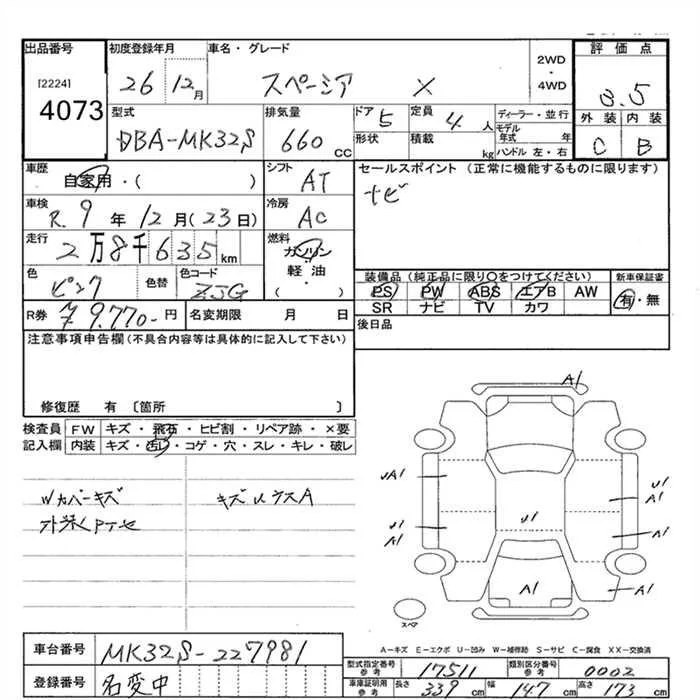 出品番号 初度登録年月 車名・グレード 2WD・4WD 評価点
[2224] 4073 26 12月 スペーシア X 3.5
型式 排気量 ドア 定員 ディーラー・並行 外装 内装
DBA-MK32S 660 CC 5 4人 モデル年式 年 C B
形状 積載 kg ハンドル 左・右
車歴 シフト セールスポイント (正常に機能するものに限ります)
自家用・( ) AT ナビ
車検 冷房
R.9年12月(23日) AC
走行 燃料
2万8千635km ガソリン・軽油・( )
色 色替 色コード 装備品(純正品に限り〇をつけてください) 新車保証書
ピンク ZJG PS PW ABS エアB AW 有・無
SR ナビ TV カワ
R券 ¥9,770-円 名変期限 月 日 後日品
注意事項申告欄(不具合内容等は具体的に記入して下さい)
修復歴 有 〔箇所 〕
検査員 FW キズ・飛石・ヒビ割・リペア跡・×要
記入欄 内装 キズ・汚レ・コゲ・穴・スレ・キレ・破レ
Wカバーキズ
キズUウスA
A1
UA1 U1 A1
U1 A1 U1 A1
A1 A1
スペア
A-キズ E-エクボ U-凹み W-補修跡 S-サビ C-腐食 XX-交換済
車台番号 MK32S-227981
型式指定番号参考 17511 類別区分番号参考 0002
登録番号 名変中
車庫証明用参考 長さ 339cm 幅 147cm 高さ 173cm